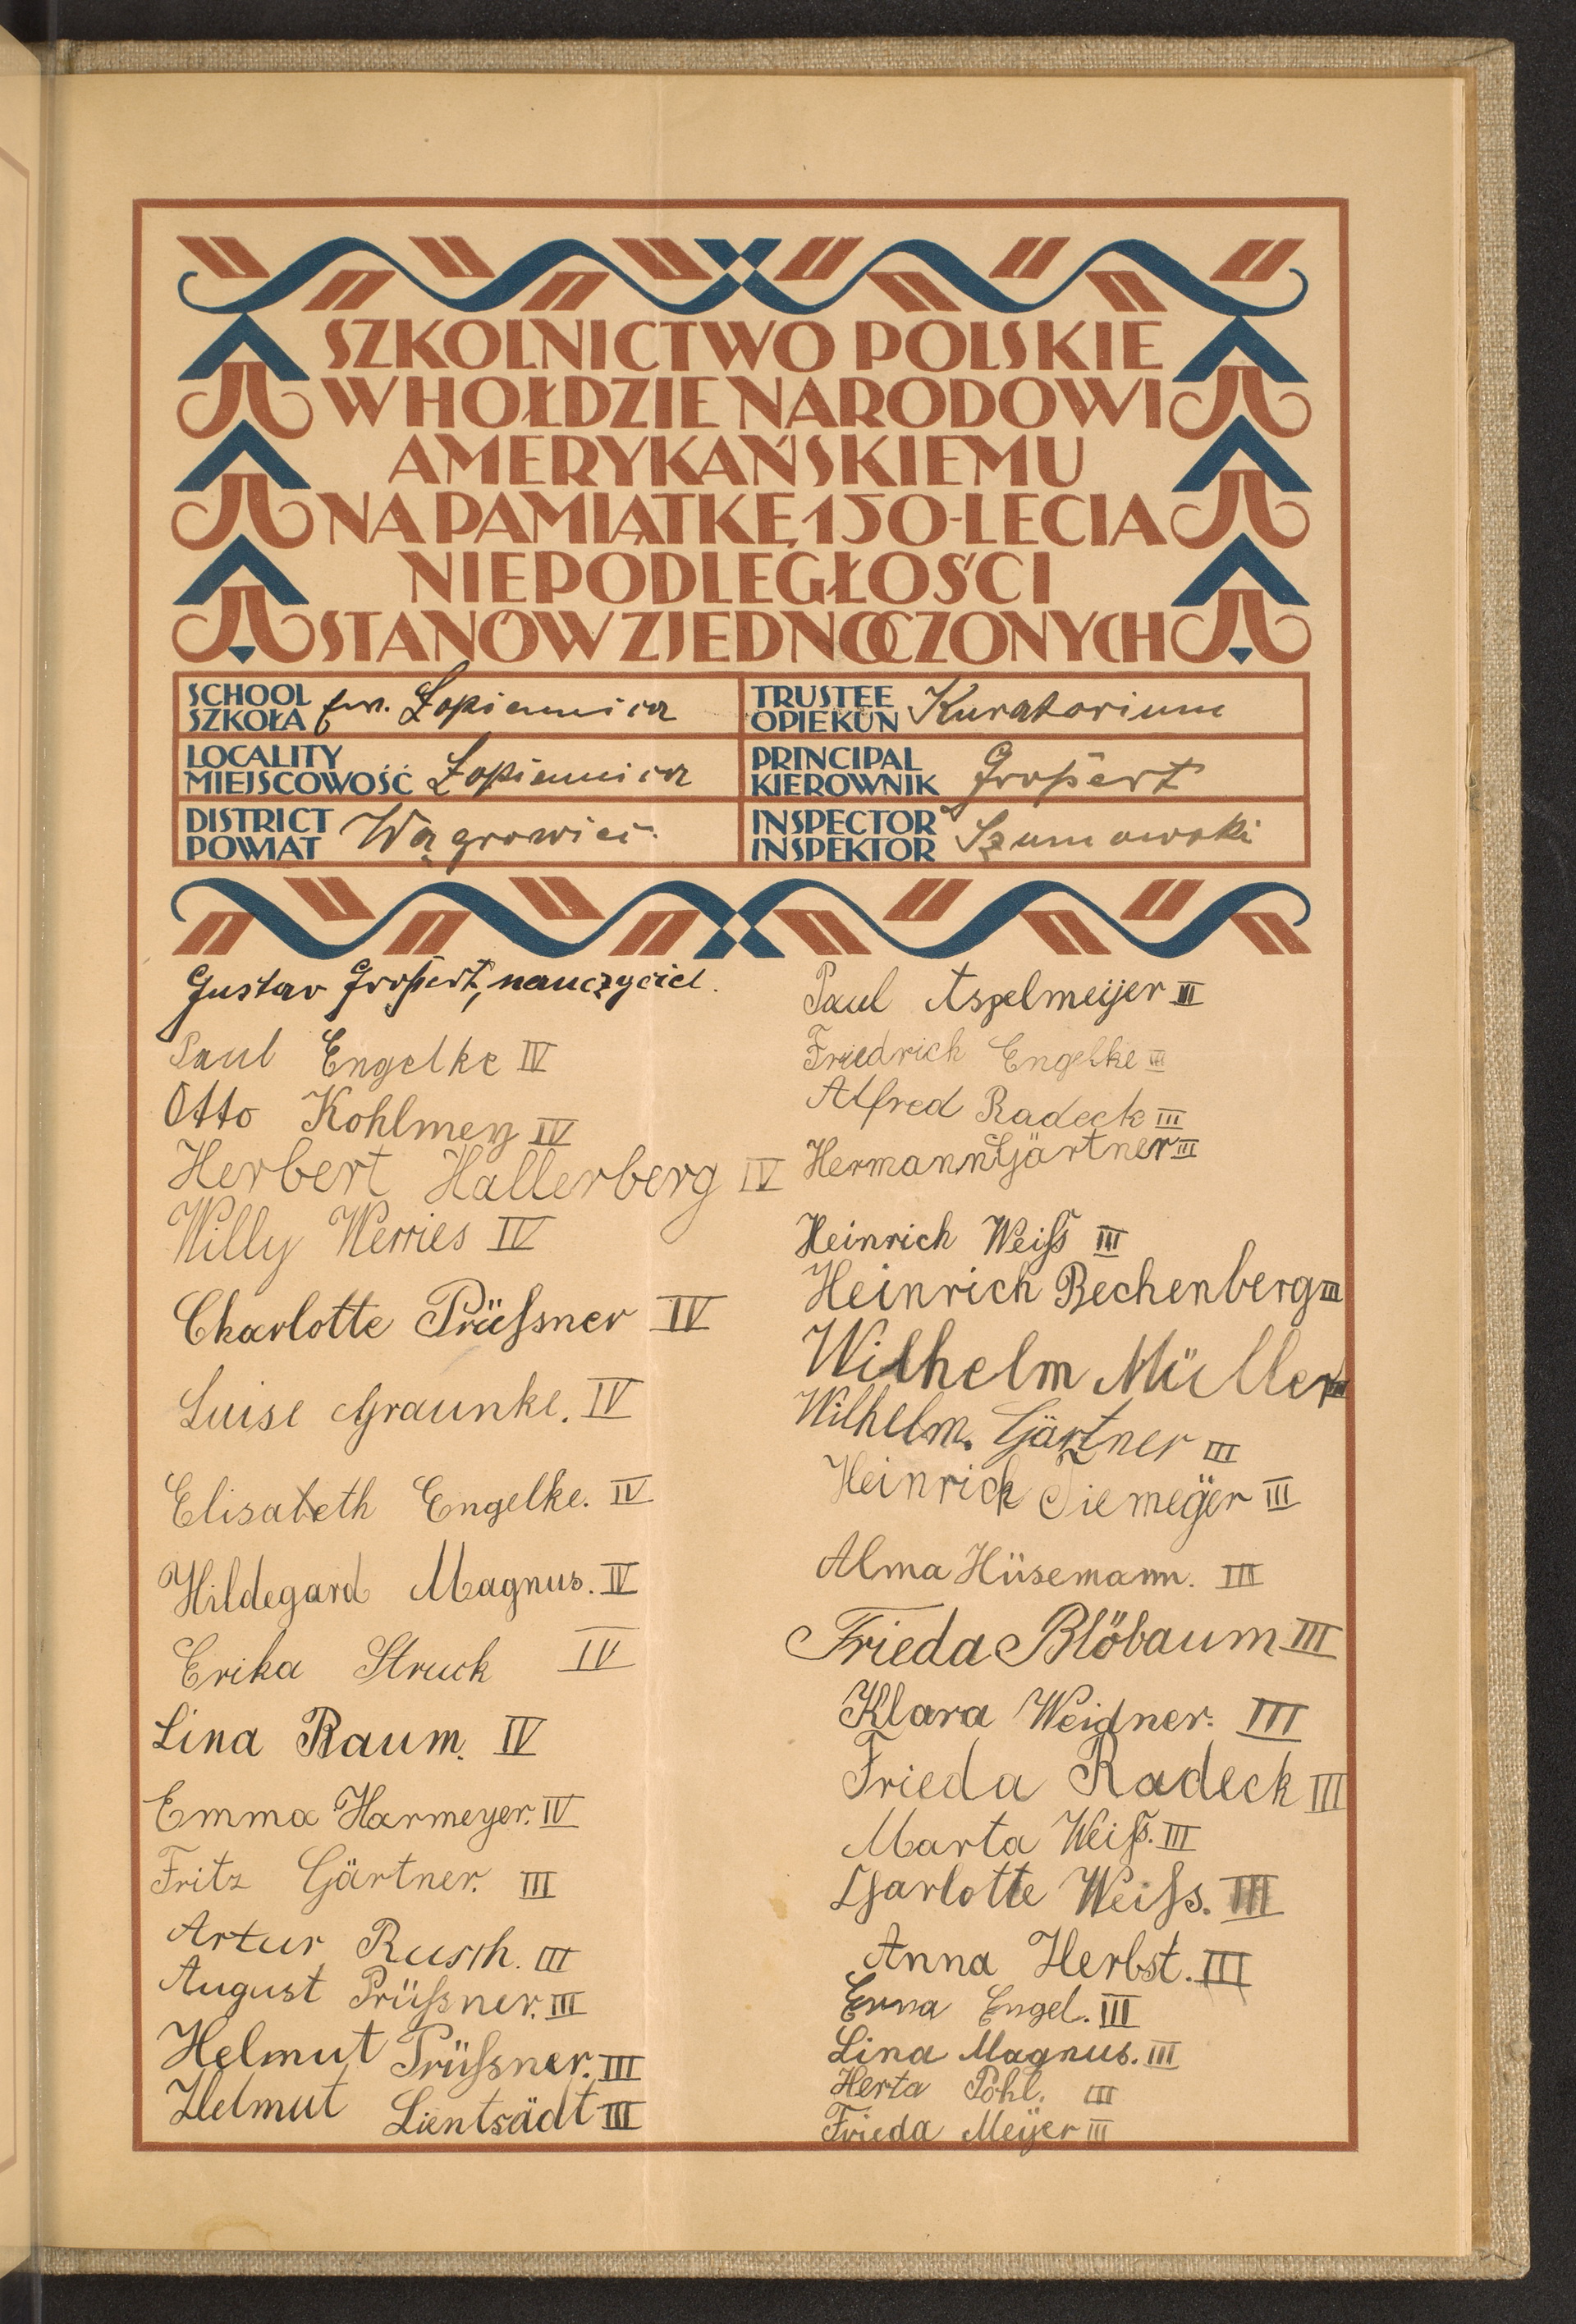 SZKOLNICTWO POLSKIE
W HOŁDZIE NARODOWI
AMERYKAŃSKIEMU
NA PAMIĄTKĘ 150-LECIA
NIEPODLEGŁOŚCI
STANÓW ZJEDNOCZONYCH
SCHOOL
SZKOŁA ew. Łopiennica
LOCALITY
MIEJSCOWOŚĆ Łopiennica
DISTRICT
POWIAT Wągrowiec
TRUSTEE
OPIEKUN Kuratorium
PRINCIPAL
KIEROWNIK Gropert
INSPECTOR
INSPEKTOR Szumowski
Gustav Gropert, nauczyciel.
Paul Engelke IV
Otto Kohlmey IV
Herbert Hallerberg IV
Willy Werries IV
Charlotte Prüßsner IV
Luise Graunke. IV
Elisabeth Engelke. IV
Hildegard Magnus. IV
Erika Struck IV
Lina Raum. IV
Emma Harmeyer. IV
Fritz Gärtner. III
Artur Rusch. III
August Prüßner. III
Helmut Prüßsner. III
Helmut Lientsädt III
Paul Aspelmeijer III
Friedrich Engelke III
Alfred Radeck III
Hermann Gärtner III
Heinrich Weiß III
Heinrich Bechenberg III
Wilhelm Müller III
Wilhelm. Gärtner III
Heinrich Tiemeÿer III
Alma Hüsemann. III
Frieda Blöbaum III
Klara Weidner. III
Frieda Radeck III
Marta Weiß. III
Charlotte Weiß. III
Anna Herbst. III
Erna Engel. III
Lina Magnus. III
Herta Pohl. III
Frieda Meijer III